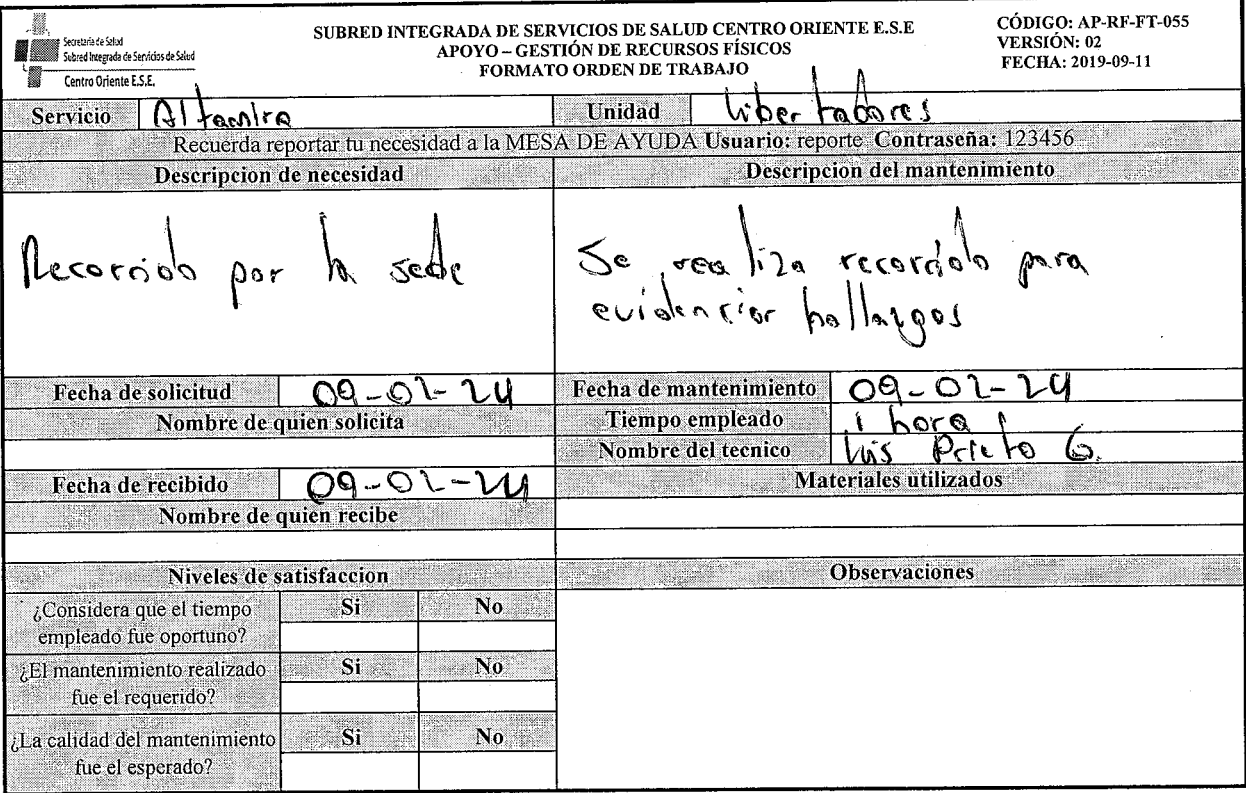 Secretaría de Salud
Subred Integrada de Servicios de Salud
Centro Oriente E.S.E.
SUBRED INTEGRADA DE SERVICIOS DE SALUD CENTRO ORIENTE E.S.E
APOYO – GESTIÓN DE RECURSOS FÍSICOS
FORMATO ORDEN DE TRABAJO
CÓDIGO: AP-RF-FT-055
VERSIÓN: 02
FECHA: 2019-09-11
Servicio Altamira Unidad Libertadores
Recuerda reportar tu necesidad a la MESA DE AYUDA Usuario: reporte Contraseña: 123456
Descripcion de necesidad
Recorrido por la sede
Descripcion del mantenimiento
Se realiza recorrido para
evidenciar hallazgos
Fecha de solicitud 09-02-24
Nombre de quien solicita
Fecha de mantenimiento 09-02-24
Tiempo empleado 1 hora
Nombre del tecnico Luis Prieto G.
Fecha de recibido 09-02-24
Nombre de quien recibe
Materiales utilizados
Niveles de satisfaccion
¿Considera que el tiempo
empleado fue oportuno?
Si No
¿El mantenimiento realizado
fue el requerido?
Si No
¿La calidad del mantenimiento
fue el esperado?
Si No
Observaciones